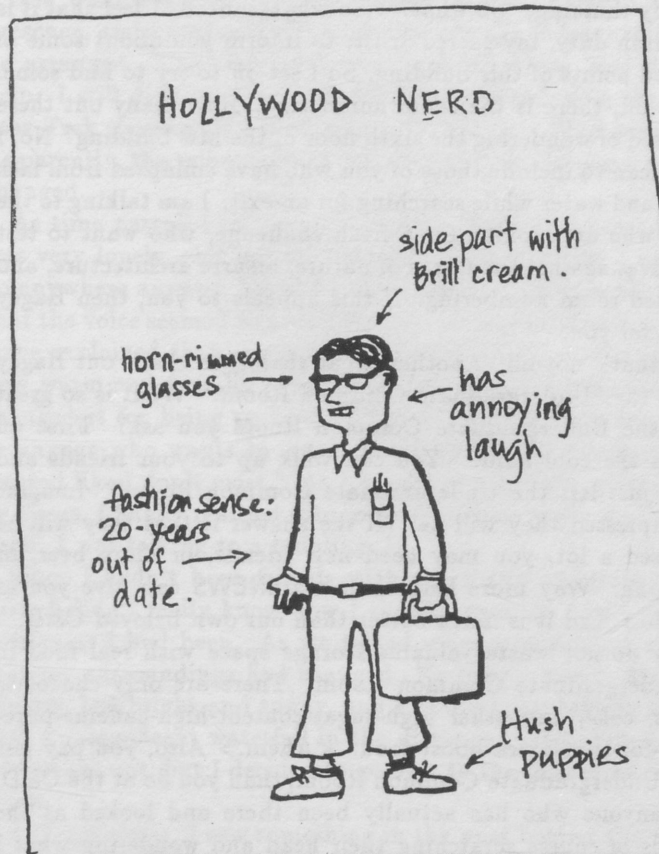 HOLLYWOOD NERD
side part with
Brill cream
horn-rimmed
glasses
has
annoying
laugh
fashion sense:
20 years
out of
date
Hush
puppies